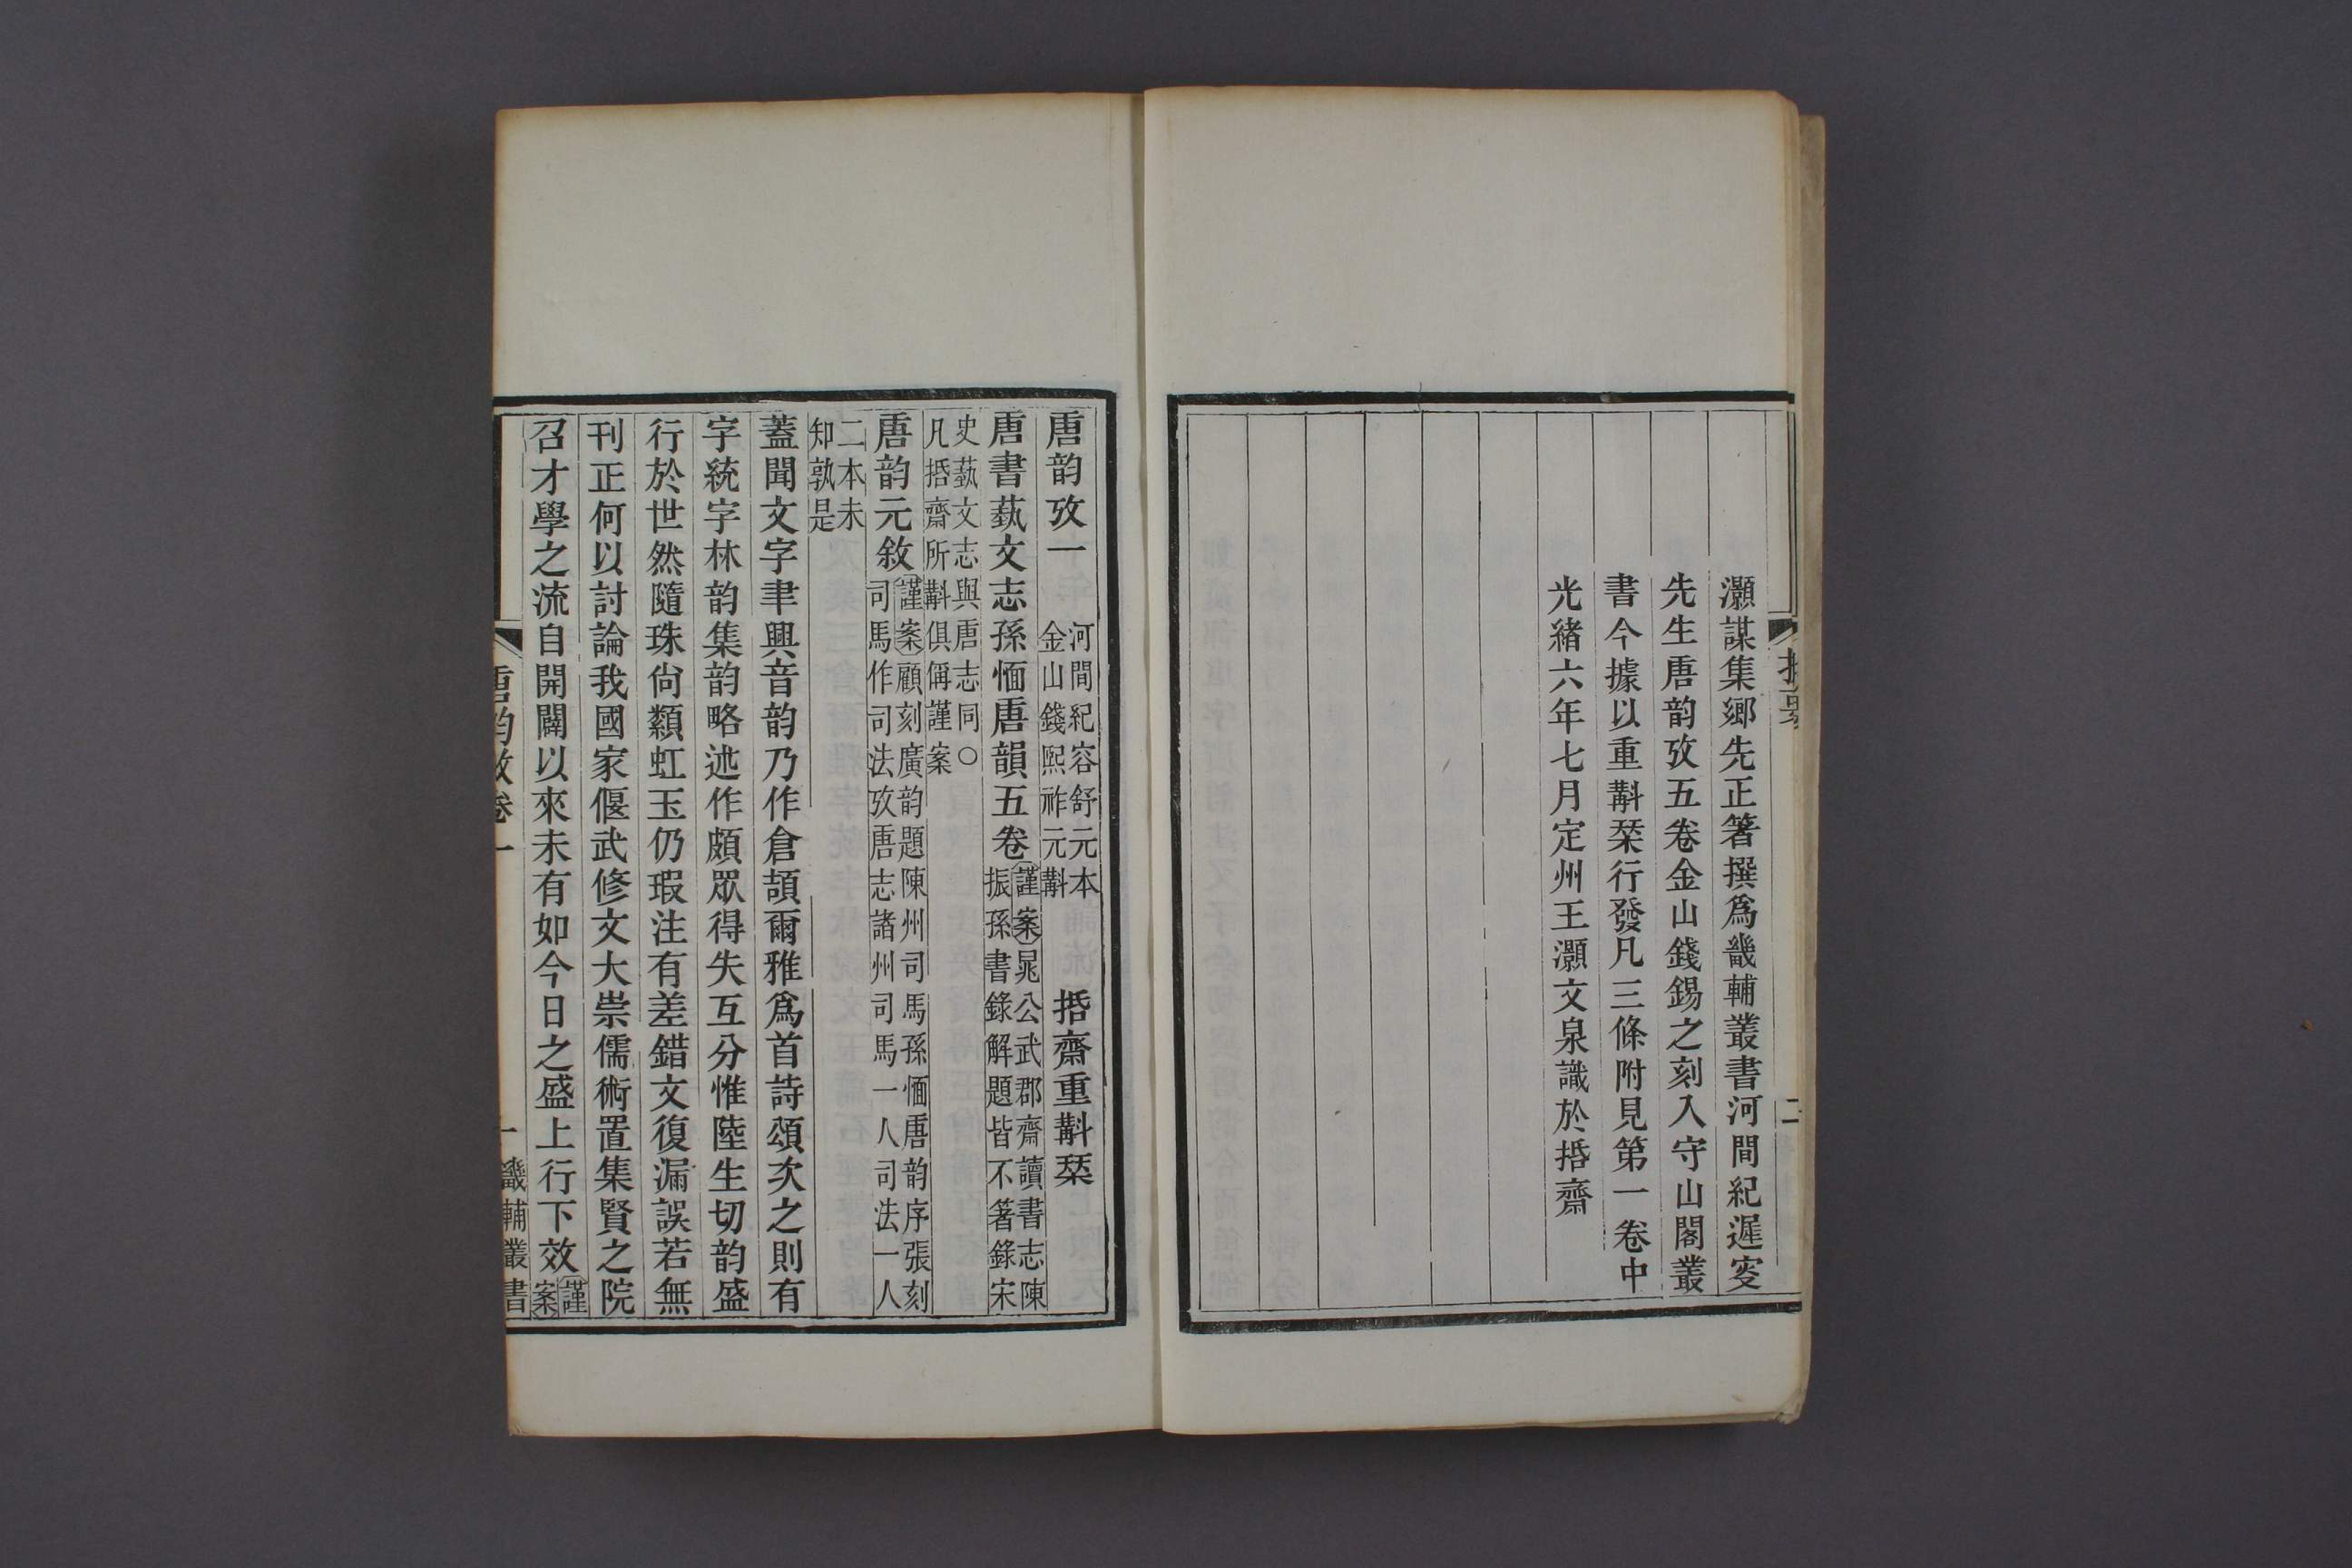 灝謀集鄉先正箸撰爲畿輔叢書河間紀遲叜
先生唐韵攷五卷金山錢錫之刻入守山閣叢
書今據以重斠栞行發凡三條附見第一卷中
光緒六年七月定州王灝文泉識於㨉齋
二
唐韵攷一
河間紀容舒元本
金山錢熙祚元斠
㨉齋重斠栞
唐書藝文志孫愐唐韻五卷
謹案晁公武郡齋讀書志陳
振孫書錄解題皆不箸錄宋
史藝文志與唐志同○
凡㨉齋所斠俱偁謹案
唐韵元敘
謹案顧刻廣韵題陳州司馬孫愐唐韵序張刻
司馬作司法攷唐志諸州司馬一人司法一人
二本未
知孰是
蓋聞文字聿興音韵乃作倉頡爾雅爲首詩頌次之則有
字統字林韵集韵略述作頗眾得失互分惟陸生切韵盛
行於世然隨珠尙纇虹玉仍瑕注有差錯文復漏誤若無
刊正何以討論我國家偃武修文大崇儒術置集賢之院
召才學之流自開闢以來未有如今日之盛上行下效
謹
案
唐韵攷卷一
一
畿輔叢書